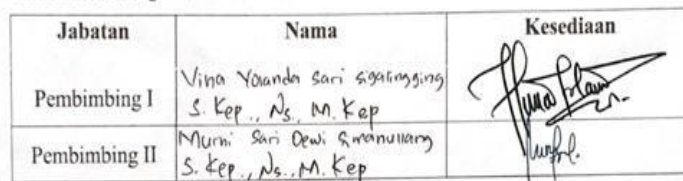 Jabatan Nama Kesediaan
Pembimbing I Vina Yolanda Sari sigalingging
S. Kep., Ns, M. Kep
Pembimbing II Murni Sari Dewi Simanullang
S. Kep., Ns., M. Kep